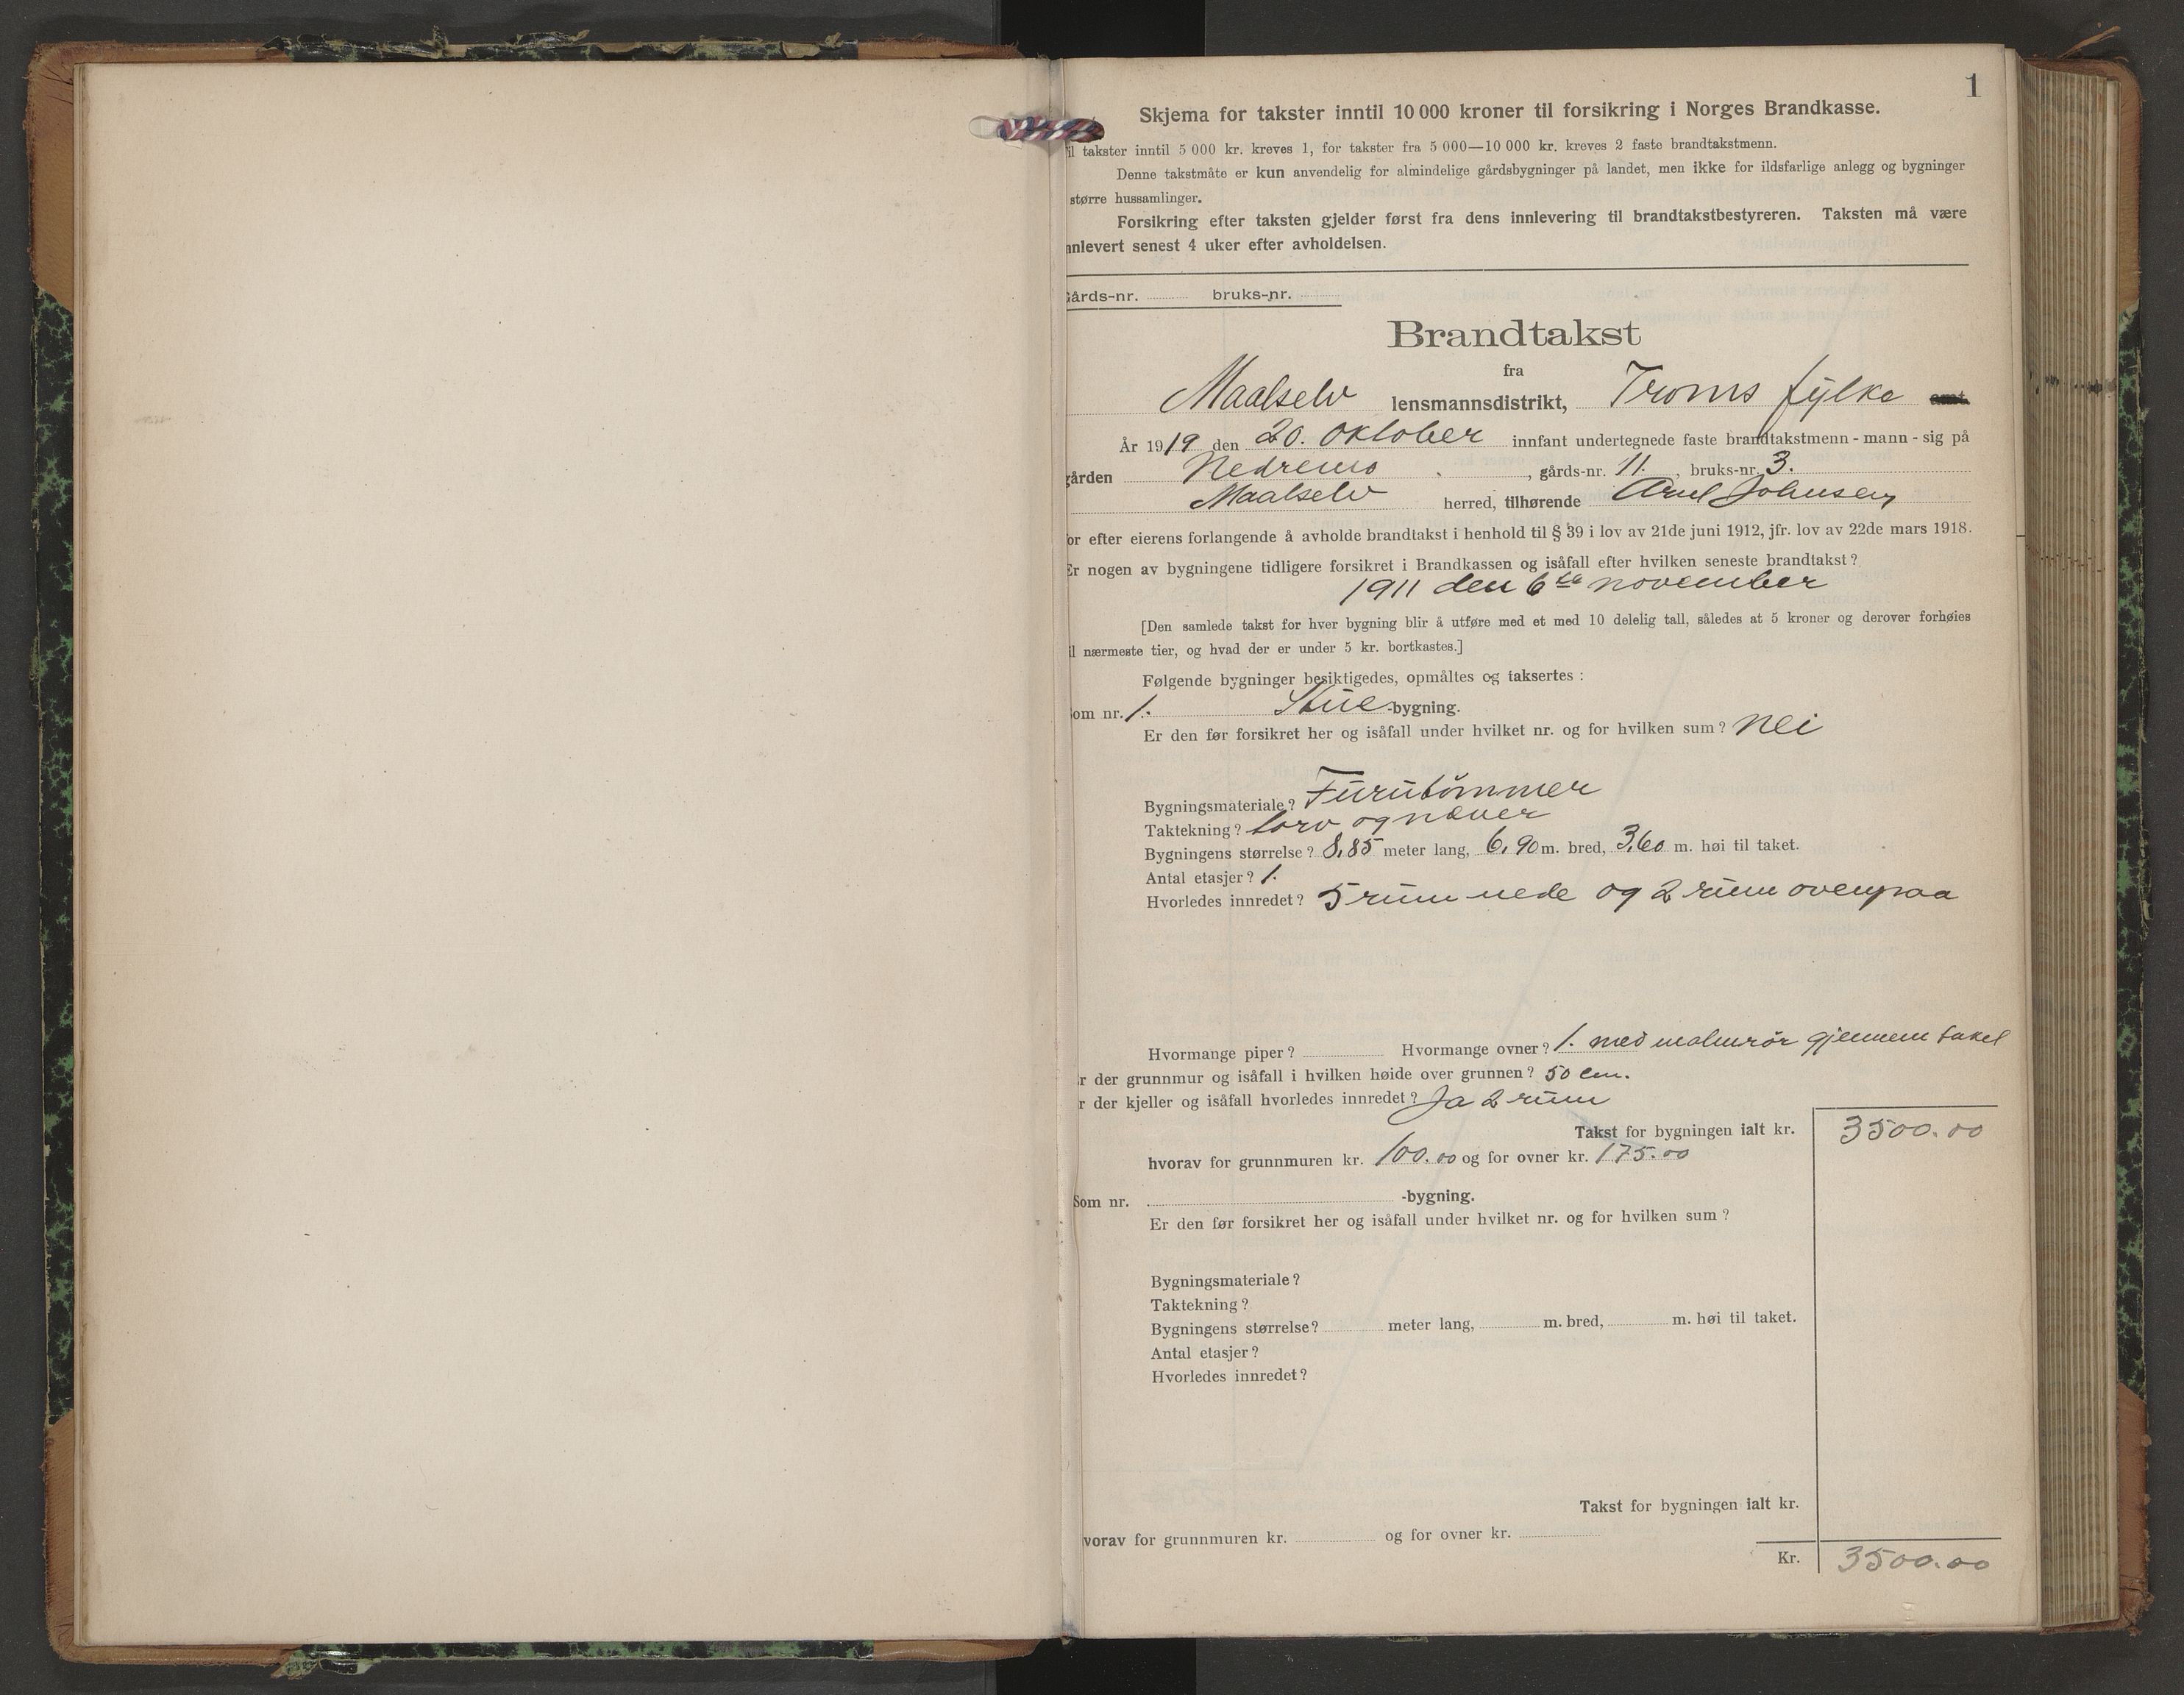 1
Skjema for takster inntil 10 000 kroner til forsikring i Norges Brandkasse.
il takster inntil 5 000 kr. kreves 1, for takster fra 5 000—10 000 kr. kreves 2 faste brandtakstmenn.
Denne takstmåte er kun anvendelig for almindelige gårdsbygninger på landet, men ikke for ildsfarlige anlegg og bygninger
større hussamlinger.
Forsikring efter taksten gjelder først fra dens innlevering til brandtakstbestyreren. Taksten må være
nnlevert senest 4 uker efter avholdelsen.
Gårds-nr. bruks-nr.
Brandtakst
fra
Maalselv lensmannsdistrikt, Troms fylke amt.
År 1919 den 20. oktober innfant undertegnede faste brandtakstmenn - mann - sig på
gården Nedremo , gårds-nr. 11. , bruks-nr. 3.
Maalselv herred, tilhørende Johnsen
or efter eierens forlangende å avholde brandtakst i henhold til § 39 i lov av 21de juni 1912, jfr. lov av 22de mars 1918.
Er nogen av bygningene tidligere forsikret i Brandkassen og isåfall efter hvilken seneste brandtakst?
1911 den 6te november
[Den samlede takst for hver bygning blir å utføre med et med 10 delelig tall, således at 5 kroner og derover forhøies
il nærmeste tier, og hvad der er under 5 kr. bortkastes.]
Følgende bygninger besiktigedes, opmåltes og taksertes :
Som nr. 1. Stue-bygning.
Er den før forsikret her og isåfall under hvilket nr. og for hvilken sum? nei
Bygningsmateriale? Furutømmer
Taktekning? torv og næver
Bygningens størrelse? 8,85 meter lang, 6,90 m. bred, 3,60 m. høi til taket.
Antal etasjer? 1.
Hvorledes innredet? 5 rum nede og 2 rum ovenpaa
Hvormange piper? Hvormange ovner? 1. med malmrør gjennem taket
r der grunnmur og isåfall i hvilken høide over grunnen? 50 cm.
r der kjeller og isåfall hvorledes innredet? Ja 2 rum
Takst for bygningen ialt kr. 3500.00
hvorav for grunnmuren kr. 100.00 og for ovner kr. 175.00
Som nr. -bygning.
Er den før forsikret her og isåfall under hvilket nr. og for hvilken sum?
Bygningsmateriale?
Taktekning?
Bygningens størrelse? meter lang, m. bred, m. høi til taket.
Antal etasjer?
Hvorledes innredet?
Takst for bygningen ialt kr.
vorav for grunnmuren kr. og for ovner kr.
Kr. 3500.00